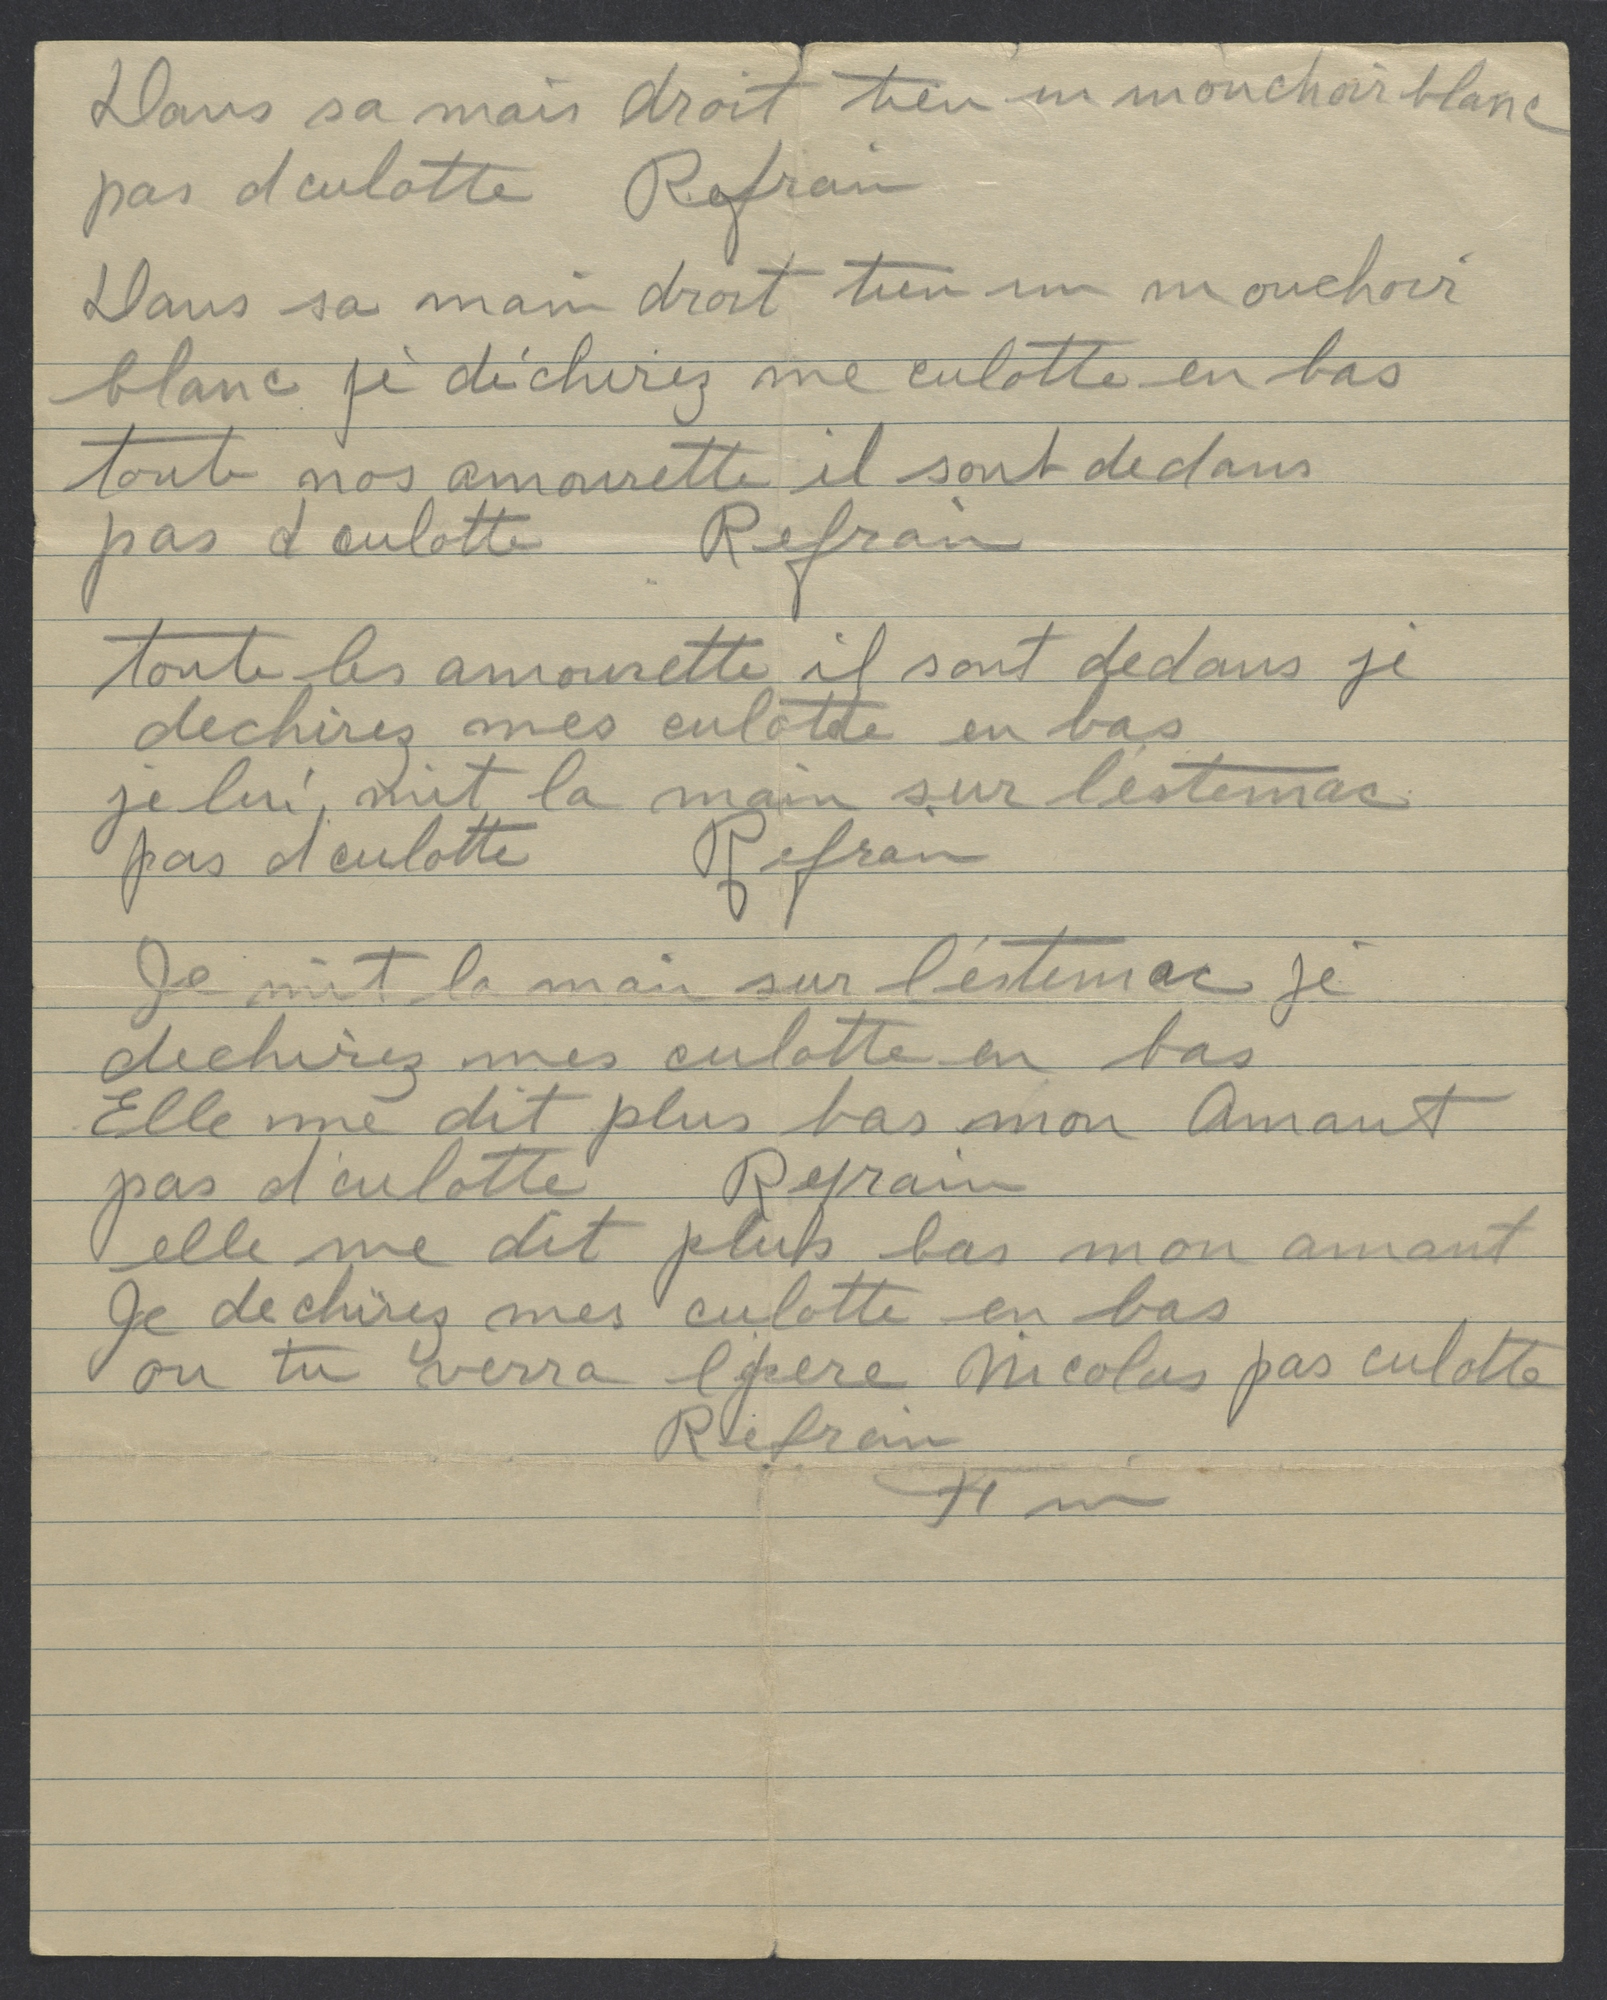 Dans sa mais droit tien un mouchoir blanc
pas d culotte Refrain
Dans sa main droit tien un mouchoir
blanc jè déchirez me culotte en bas
toute nos amourette il sont dedans
pas d culotte Refrain
toute les amourette il sont dedans je
dechirez mes culotte en bas
je lui mit la main sur l'estemac
pas d culotte Refrain
Je mit la main sur l'éstemac je
dechirez mes culotte en bas
Elle me dit plus bas mon Amant
pas d'culotte Refrain
elle me dit plus bas mon amant
Je dechirez mes culotte en bas
ou tu verra l pere Nicolas pas culotte
Refrain
Fin